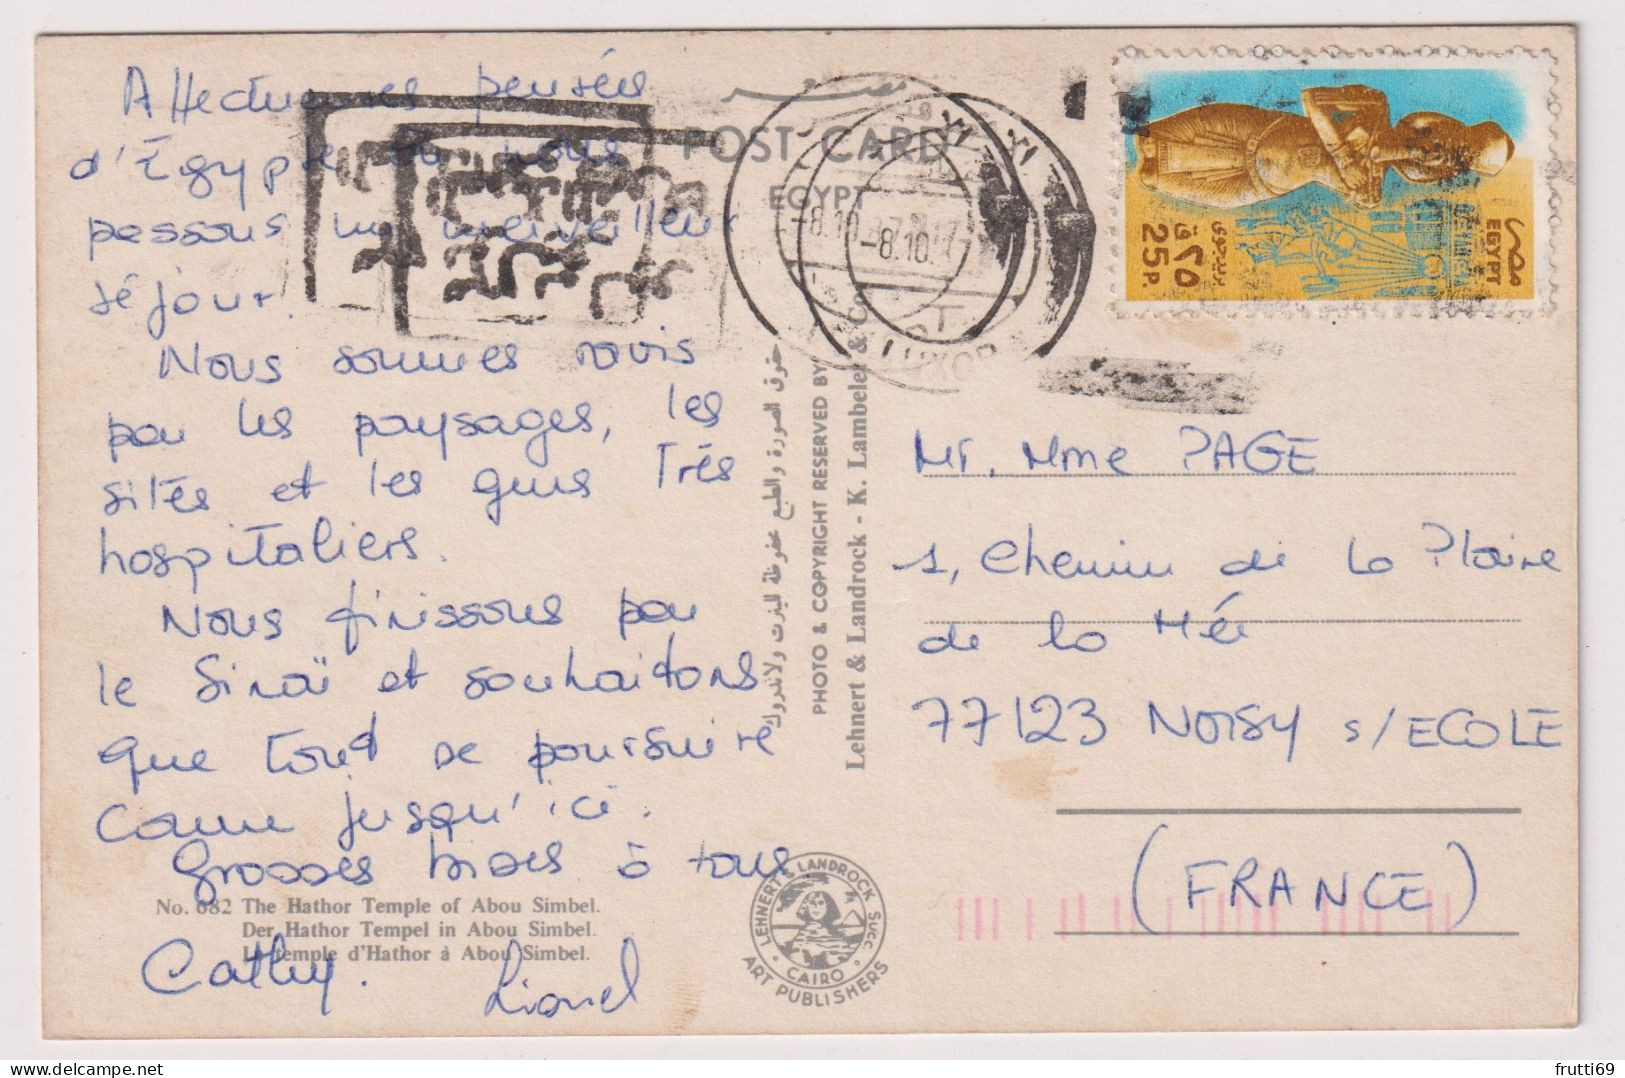 Affectueuses pensées
d'Égypte où nous
passons un merveilleux
séjour.
Nous sommes ravis
par les paysages, les
sites et les gens Très
hospitaliers.
Nous finissons par
le Sinaï et souhaitons
que tout se poursuive
comme jusqu'ici.
Grosses bises à tous
Cathy. Lionel
No. 682 The Hathor Temple of Abou Simbel.
Der Hathor Tempel in Abou Simbel.
Le temple d'Hathor à Abou Simbel.
مصر
POST CARD
EGYPT
-8.10.87
-8.10.
LUXOR
حقوق الصورة والطبع محفوظة للينرت ولاندروك
PHOTO & COPYRIGHT RESERVED BY
Lehnert & Landrock - K. Lambelet & Co.
LEHNERT & LANDROCK SUCC.
CAIRO
ART PUBLISHERS
مصر
EGYPT
٢٥ ق
25 P.
بريد جوى
Mr. Mme PAGE
1, Chemin de la Plaine
de la Mée
77123 NOISY s/ECOLE
(FRANCE)
frutti69